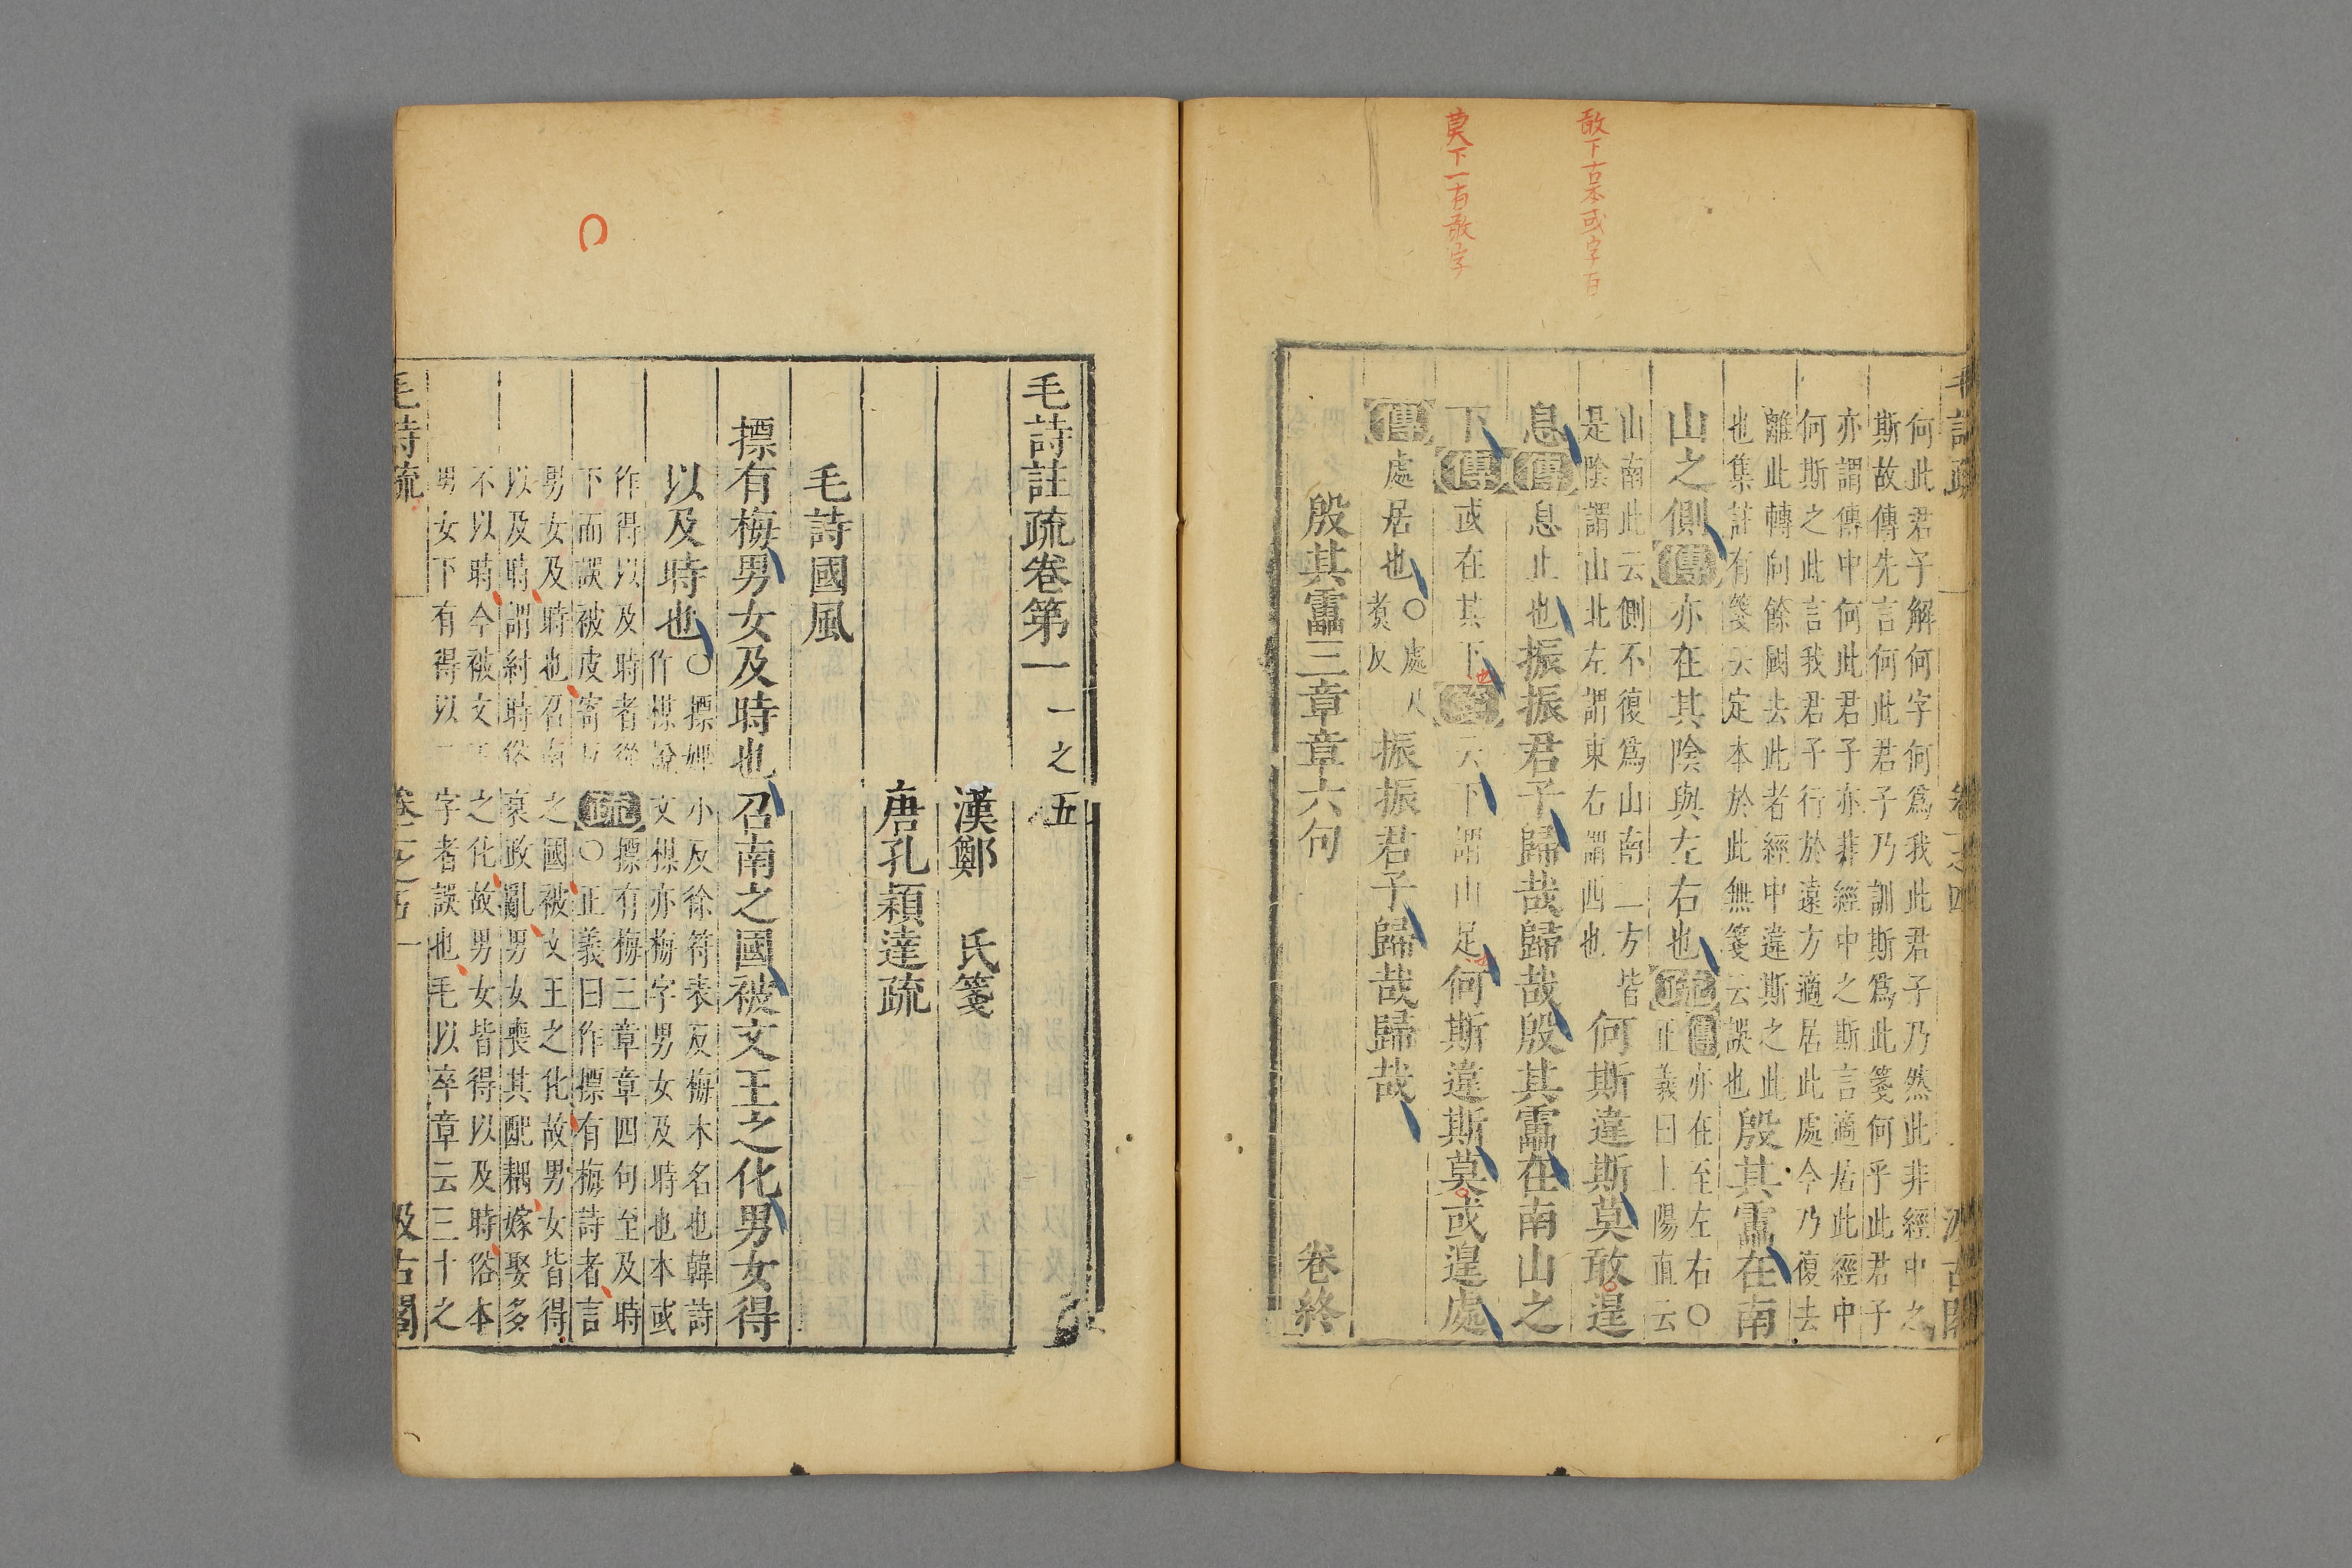 敢下古本或字有
莫下一有敢字
何此君子解何字何爲我此君子乃然此非經中之
斯故傳先言何此君子乃訓斯爲此箋何乎此君子
亦謂傳中何此君子亦非經中之斯言適居此經中
何斯之此言我君子行於遠方適居此處今乃復去
離此轉向餘國去此者經中違斯之此
也集註有箋云定本於此無箋云誤也
殷其靁在南
山之側
傳
亦在其陰與左右也
疏
傳亦在至左右○
正義曰上陽直云
山南此云側不復爲山南二方皆
是陰謂山北左謂東右謂西也
何斯違斯莫敢遑
息
傳
息止也
振振君子歸哉歸哉殷其靁在南山之
下
傳
或在其下
箋
云下謂山足
何斯違斯莫或遑處
傳
處居也
○處尺
煑反
振振君子歸哉歸哉
殷其靁三章章六句
卷終
毛詩註疏卷第一
一之五
漢鄭　氏箋
唐孔穎達疏
毛詩國風
摽有梅男女及時也召南之國被文王之化男女得
以及時也
○摽婢小反徐符表反梅木名也韓詩
作楳說文楳亦梅字男女及時也本或
作得以及時者從
下而誤被皮寄反
疏
摽有梅三章章四句至及時
○正義曰作摽有梅詩者言
男女及時也召南之國被文王之化故男女皆得
以及時謂紂時俗衰政亂男女喪其配耦嫁娶多
不以時今被文王之化故男女皆得以及時俗本
男女下有得以二字者誤也毛以卒章云三十之
毛詩疏
卷一之五
一
汲古閣